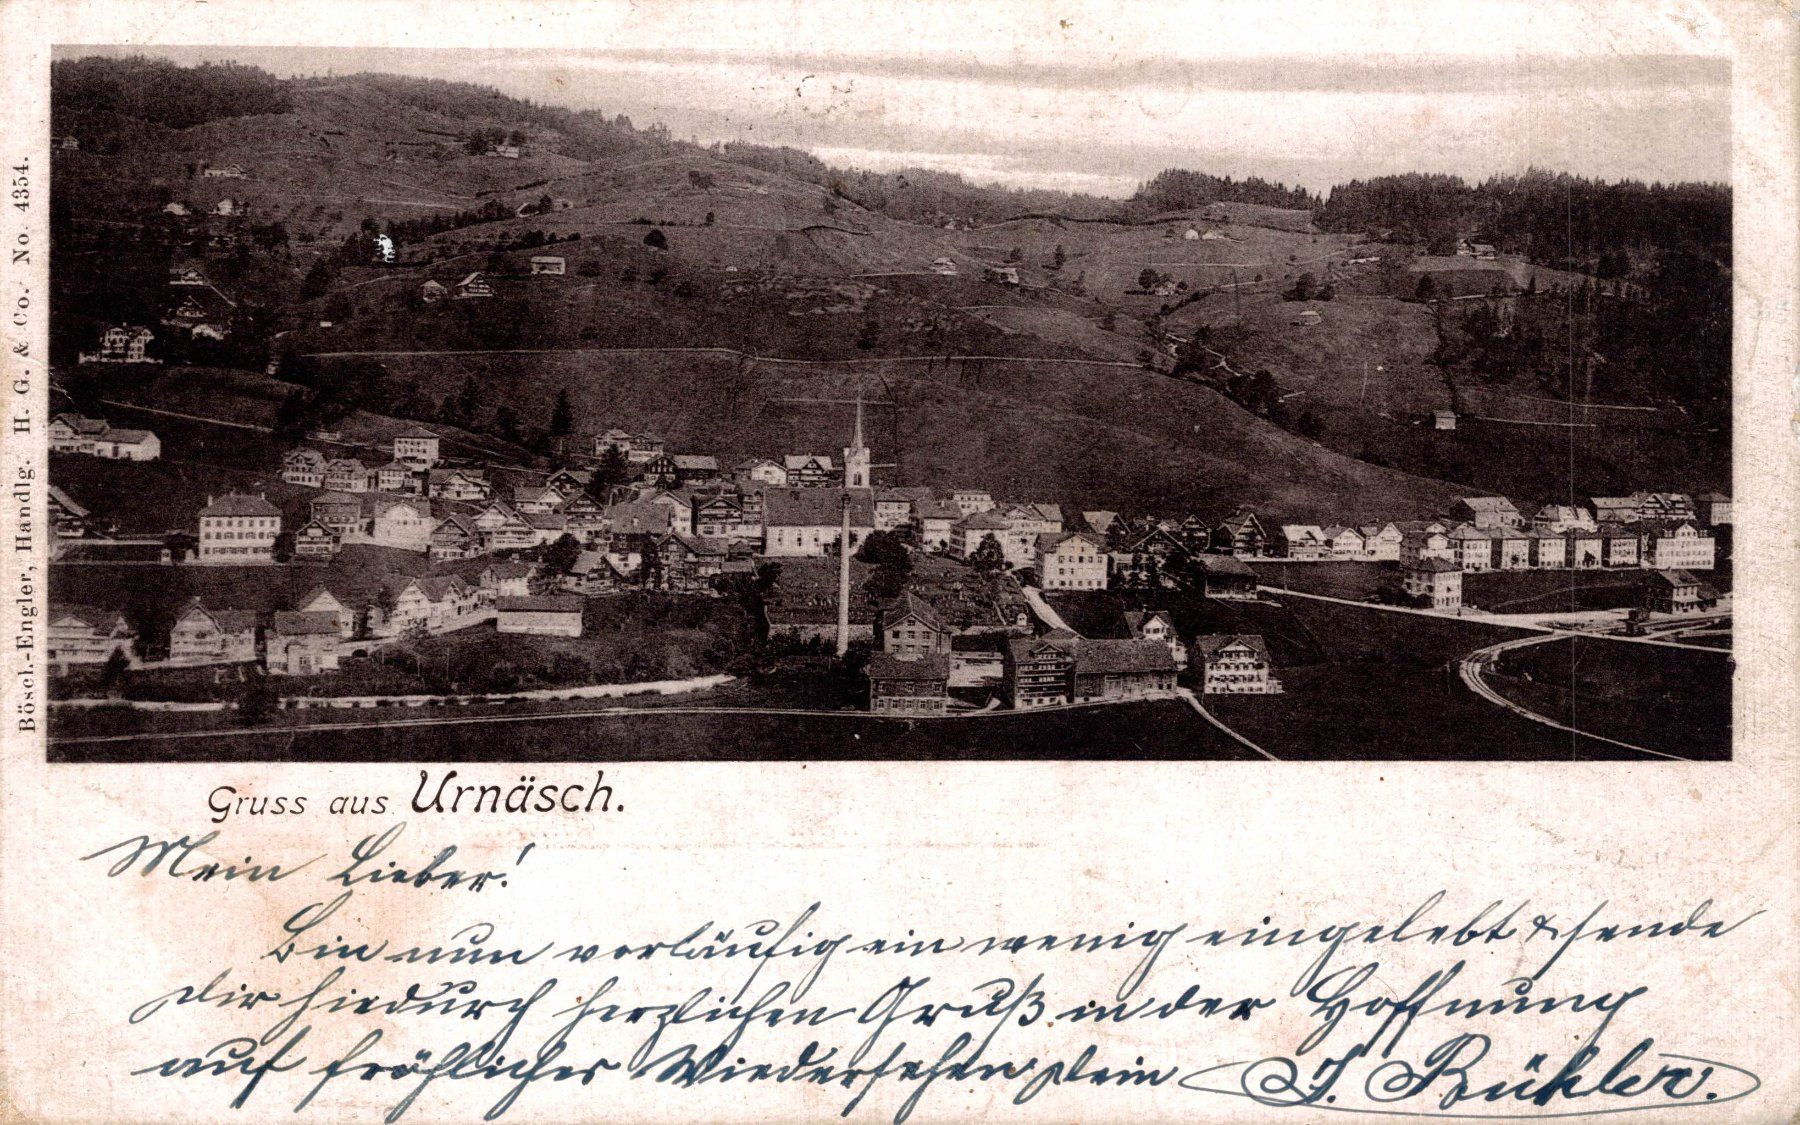 Bösch.-Engler, Handlg. H. G. & Co. No. 4354.
Gruss aus Urnäsch.
Mein Lieber!
Bin nun vorläufig ein wenig eingelebt & sende
Dir hiedurch herzlichen Gruß in der Hoffnung
auf fröhliches Wiedersehen Dein J. Bühler.